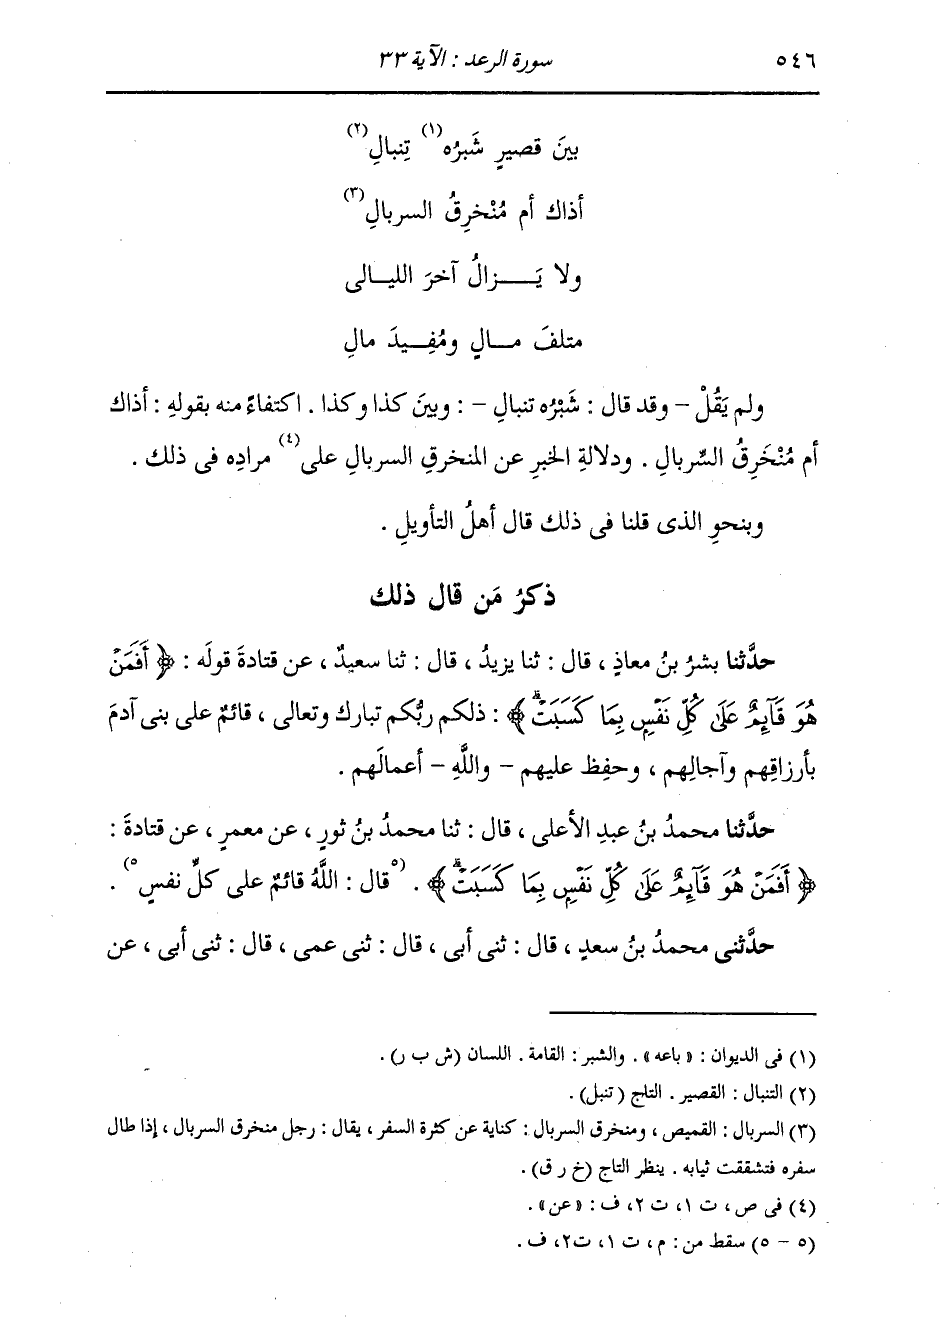 ٥٤٦ سورة الرعد : الآية ٣٣
بينَ قصيرٍ شَبرُه(١) تِنبالِ(٢)
أذاك أم مُنْخرِقُ السربالِ(٣)
ولا يَـــزالُ آخرَ الليـالى
متلفَ مـالٍ ومُفِـيدَ مالِ
ولم يَقُلْ – وقد قال : شَبْرُه تنبالِ – : وبينَ كذا وكذا . اكتفاءً منه بقولهِ : أذاك
أم مُنْخَرِقُ السِّربالِ . ودلالةِ الخبرِ عن المنخرقِ السربالِ على(٤) مرادِه فى ذلك .
وبنحوِ الذى قلنا فى ذلك قال أهلُ التأويلِ .
ذكرُ مَن قال ذلك
حدَّثنا بشرُ بنُ معاذٍ ، قال : ثنا يزيدُ ، قال : ثنا سعيدٌ ، عن قتادةَ قولَه : ﴿ أَفَمَنْ
هُوَ قَآئِمٌ عَلَىٰ كُلِّ نَفْسٍ بِمَا كَسَبَتْۗ ﴾ : ذلكم ربُّكم تبارك وتعالى ، قائمٌ على بنى آدمَ
بأرزاقِهم وآجالِهم ، وحفِظ عليهم – واللَّهِ – أعمالَهم .
حدَّثنا محمدُ بنُ عبدِ الأعلى ، قال : ثنا محمدُ بنُ ثورٍ ، عن معمرٍ ، عن قتادةَ :
﴿ أَفَمَنْ هُوَ قَآئِمٌ عَلَىٰ كُلِّ نَفْسٍ بِمَا كَسَبَتْۗ ﴾ . (٥قال : اللَّهُ قائمٌ على كلِّ نفسٍ٥) .
حدَّثنى محمدُ بنُ سعدٍ ، قال : ثنى أبى ، قال : ثنى عمى ، قال : ثنى أبى ، عن
(١) فى الديوان : « باعه » . والشبر : القامة . اللسان (ش ب ر) .
(٢) التنبال : القصير . التاج (تنبل) .
(٣) السربال : القميص ، ومنخرق السربال : كناية عن كثرة السفر ، يقال : رجل منخرق السربال ، إذا طال
سفره فتشققت ثيابه . ينظر التاج (خ ر ق) .
(٤) فى ص ، ت ١، ت ٢، ف : « عن » .
(٥ – ٥) سقط من : م ، ت ١، ت٢، ف .